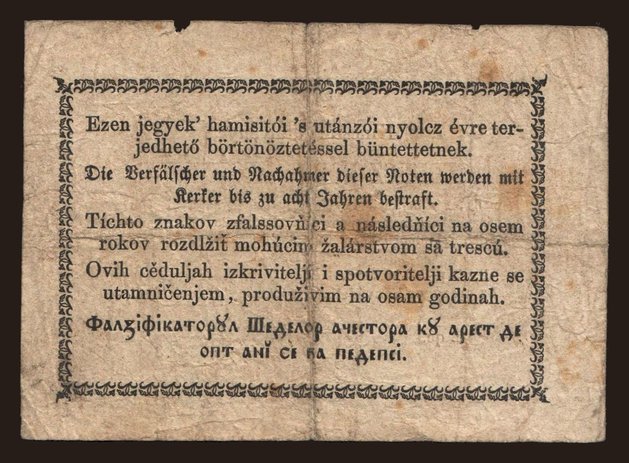 Ezen jegyek' hamisitói 's utánzói nyolcz évre ter-
jedhető börtönöztetéssel büntettetnek.
Die Verfälscher und Nachahmer dieser Noten werden mit
Kerker bis zu acht Jahren bestraft.
Tíchto znakov zfalssovňíci a následňíci na osem
rokov rozdlžiť mohúcim žalárstvom sa trescú.
Ovih cěduljah izkrivitelji i spotvoritelji kazne se
utamničenjem, produživim na osam godinah.
Фалзіфікаторꙋл Шеделор ачестора кꙋ арест де
опт анї се ва педепсі.